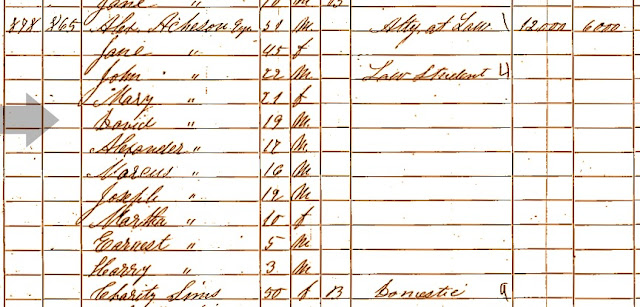 Jane " 10 M
878 865 Alex Acheson Esqr 51 M Atty at Law \ 12,000 6000
Jane " 45 f
John " 22 M Law Student 4
Mary " 21 f
David " 19 M
Alexander " 17 M
Marcus " 16 M
Joseph " 12 M
Martha " 10 f
Earnest " 5 M
Harry " 3 M
Charity Sims 50 f B Domestic 9